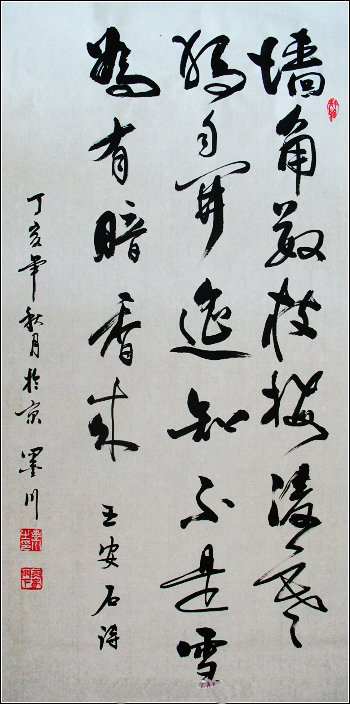 墙角数枝梅凌寒
独自开遥知不是雪
为有暗香来 王安石诗
丁亥年秋月於京 墨川